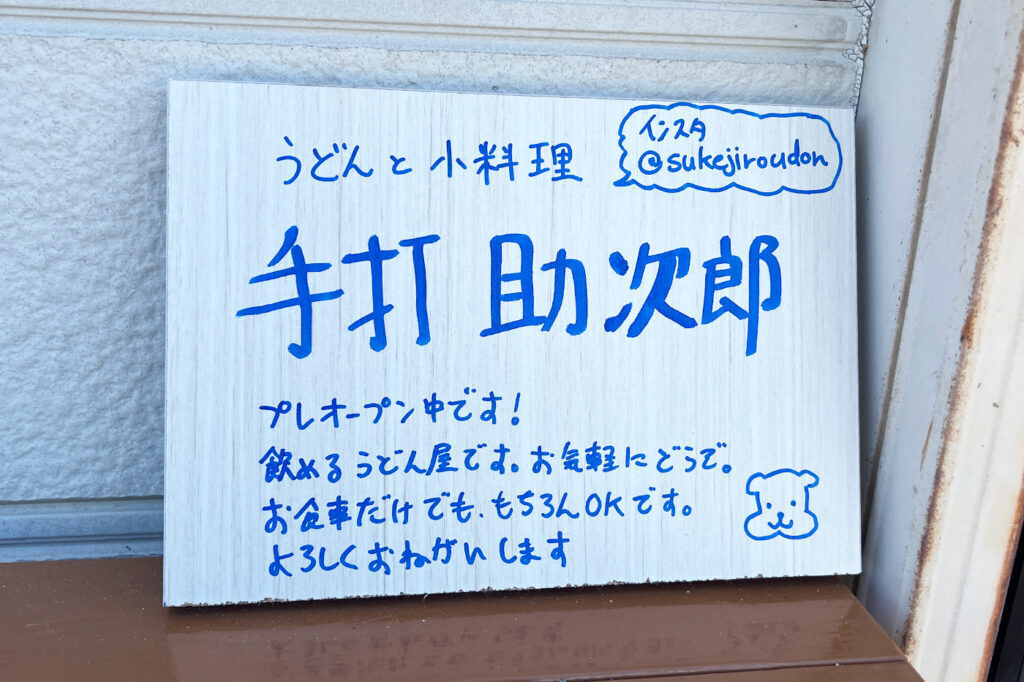 うどんと小料理
インスタ
@sukejiroudon
手打 助次郎
プレオープン中です!
飲めるうどん屋です。お気軽にどうぞ。
お食事だけでも、もちろんOKです。
よろしくおねがいします